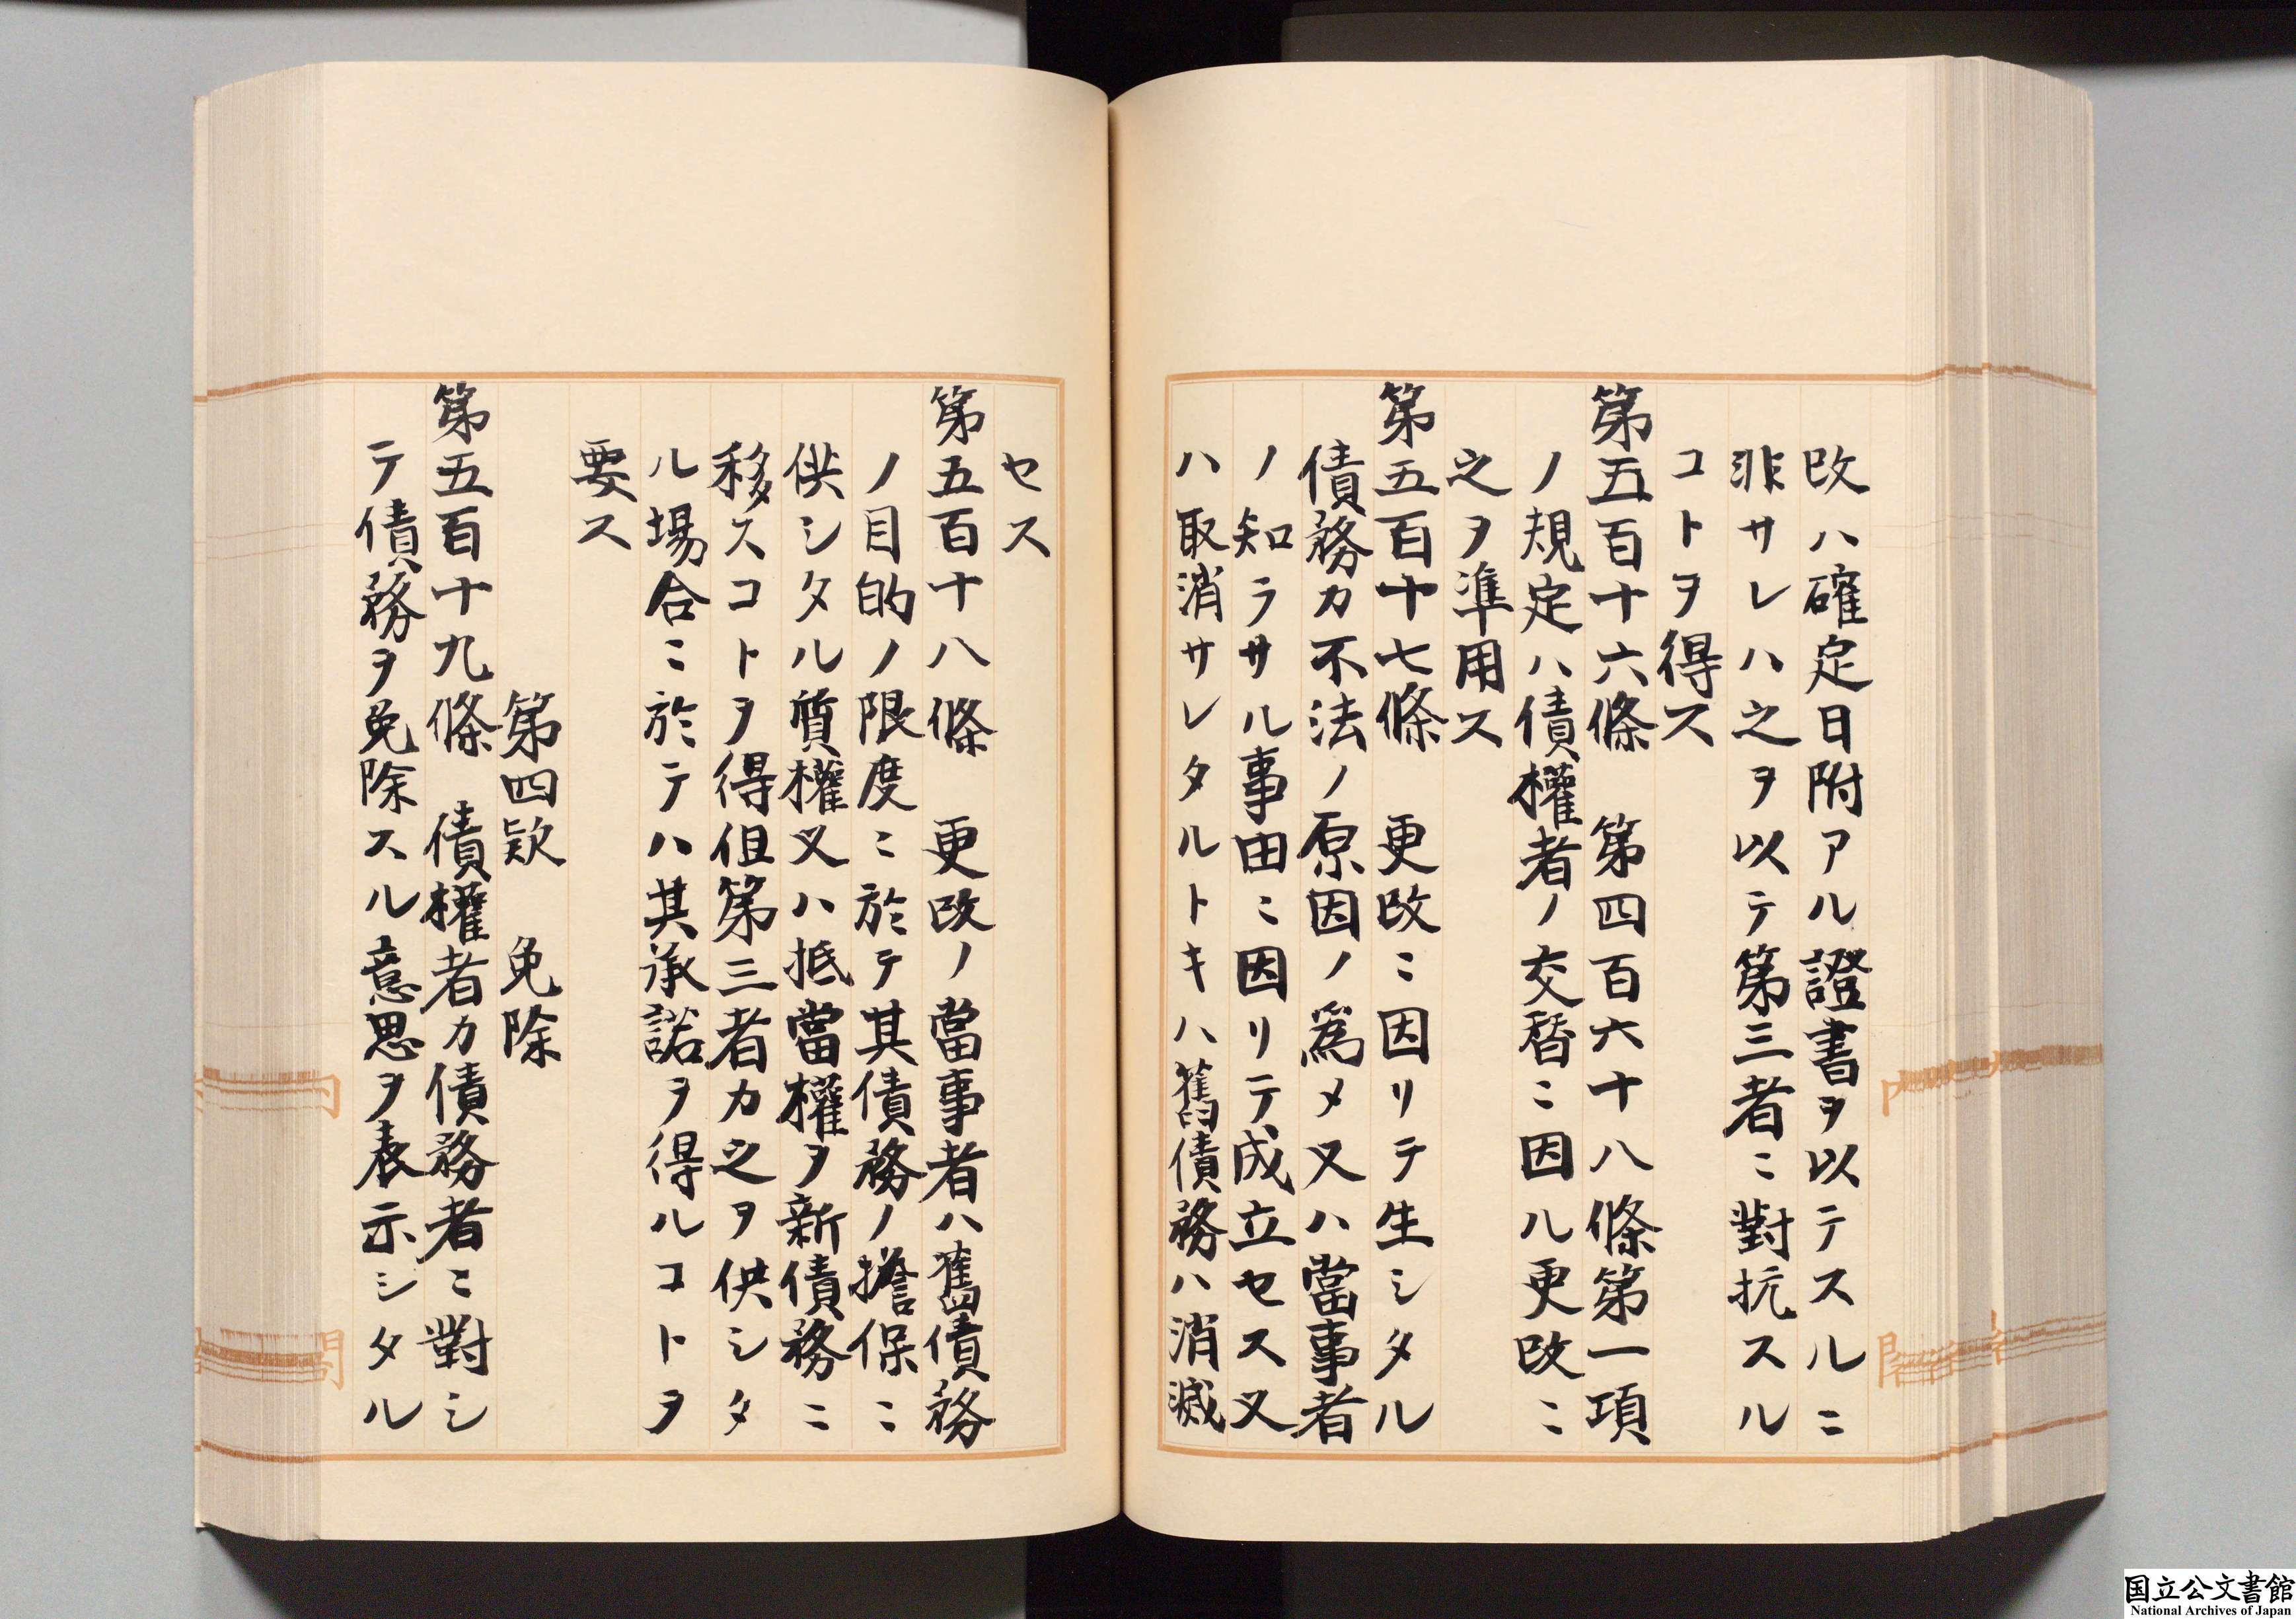 改ハ確定日附アル證書ヲ以テスルニ
非サレハ之ヲ以テ第三者ニ對抗スル
コトヲ得ス
第五百十六條　第四百六十八條第一項
ノ規定ハ債權者ノ交替ニ因ル更改ニ
之ヲ準用ス
第五百十七條　更改ニ因リテ生シタル
債務カ不法ノ原因ノ爲メ又ハ當事者
ノ知ラサル事由ニ因リテ成立セス又
ハ取消サレタルトキハ舊債務ハ消滅
セス
第五百十八條　更改ノ當事者ハ舊債務
ノ目的ノ限度ニ於テ其債務ノ擔保ニ
供シタル質權又ハ抵當權ヲ新債務ニ
移スコトヲ得但第三者カ之ヲ供シタ
ル場合ニ於テハ其承諾ヲ得ルコトヲ
要ス
第四款　免除
第五百十九條　債權者カ債務者ニ對シ
テ債務ヲ免除スル意思ヲ表示シタル
国立公文書館
National Archives of Japan